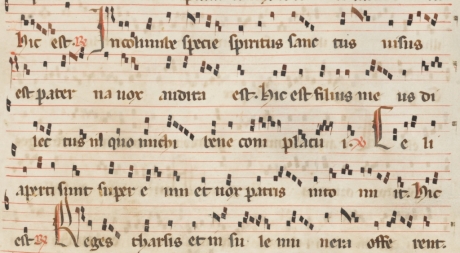 hic est. R. In columbe specie spiritus sanc tus uisus
est pater na uox audita est. Hic est filius me us di
lec tus in quo michi bene con placu i. V. Ce li
aperti sunt super e um et uox patris into nu it. Hic
est. R. Reges tharsis et in su le mu nera offe rent.